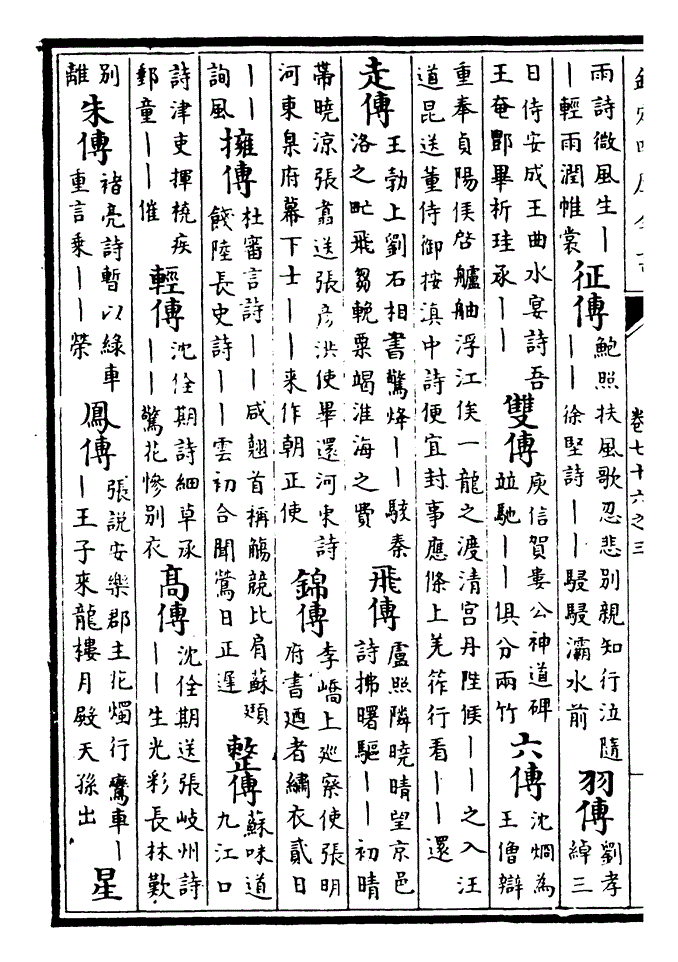 卷七十六之三
雨詩微風生丨丨輕雨潤帷裳 征傳 鮑照扶風歌忍悲別親知行泣隨丨丨徐堅詩丨丨駸駸灞水前 羽傳 劉孝綽三
日侍安成王曲水宴詩吾王奄酆畢析珪承丨丨 雙傳 庾信賀婁公神道碑竝馳丨丨俱分兩竹 六傳 沈炯為王僧辯
重奉貞陽侯啓艫舳浮江俟一龍之渡清宮丹陛候丨丨之入汪道昆送董侍御按滇中詩便宜封事應條上羌筰行看丨丨還
走傳 王勃上劉右相書驚烽丨丨駭秦洛之甿飛芻輓粟竭淮海之費 飛傳 盧照隣曉晴望京邑詩拂曙驅丨丨初晴
帶曉涼張翥送張彦洪使畢還河東詩河東臬府幕下士丨丨来作朝正使 錦傳 李嶠上巡察使張明府書廼者繡衣貳日
丨丨詢風 擁傳 杜審言詩丨丨咸翹首稱觴競比肩蘇頲餞陸長史詩丨丨雲初合聞鶯日正遲 整傳 蘇味道九江口
詩津吏揮橈疾郵童丨丨催 輕傳 沈佺期詩細草承丨丨驚花慘別衣 髙傳 沈佺期送張岐州詩丨丨生光彩長林歎
別離 朱傳 褚亮詩暫以緑車重言乘丨丨榮 鳳傳 張説安樂郡主花燭行鸞車丨丨王子來龍樓月殿天孫出 星